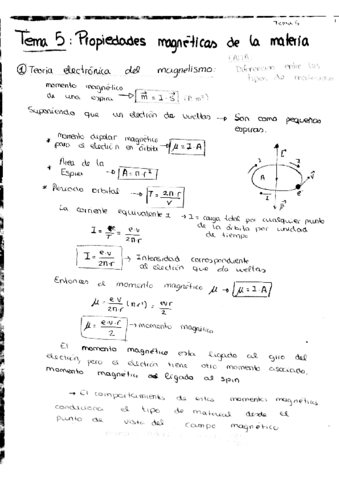 Tema 5
Tema 5: Propiedades magnéticas de la materia
① Teoría electrónica del magnetismo:
Diferencian entre los
tipos de materiales
momento magnético
de una espira → m = I · S (A m²)
Suponiendo que un electrón da vueltas → Son como pequeñas
espiras.
* Momento dipolar magnético
para el electrón en órbita → μ = I · A
* Área de la
Espira → A = π · r²
* Periodo orbital → T = 2π r / v
La corriente equivalente I → I = carga total por cualquier punto
de la órbita por unidad
de tiempo
I = e / T = e · v / 2π · r
I = e · v / 2π · r → Intensidad correspondiente
al electrón que da vueltas
Entonces el momento magnético μ → μ = I · A
μ = e · v / 2π r (π r²) = e v r / 2
μ = e · v · r / 2 → momento magnético
El momento magnético esta ligado al giro del
electrón, pero el electrón tiene otro momento asociado,
momento magnético ligado al spin
→ El comportamiento de estos momentos magnéticos
condiciona el tipo de material desde el
punto de vista del campo magnético